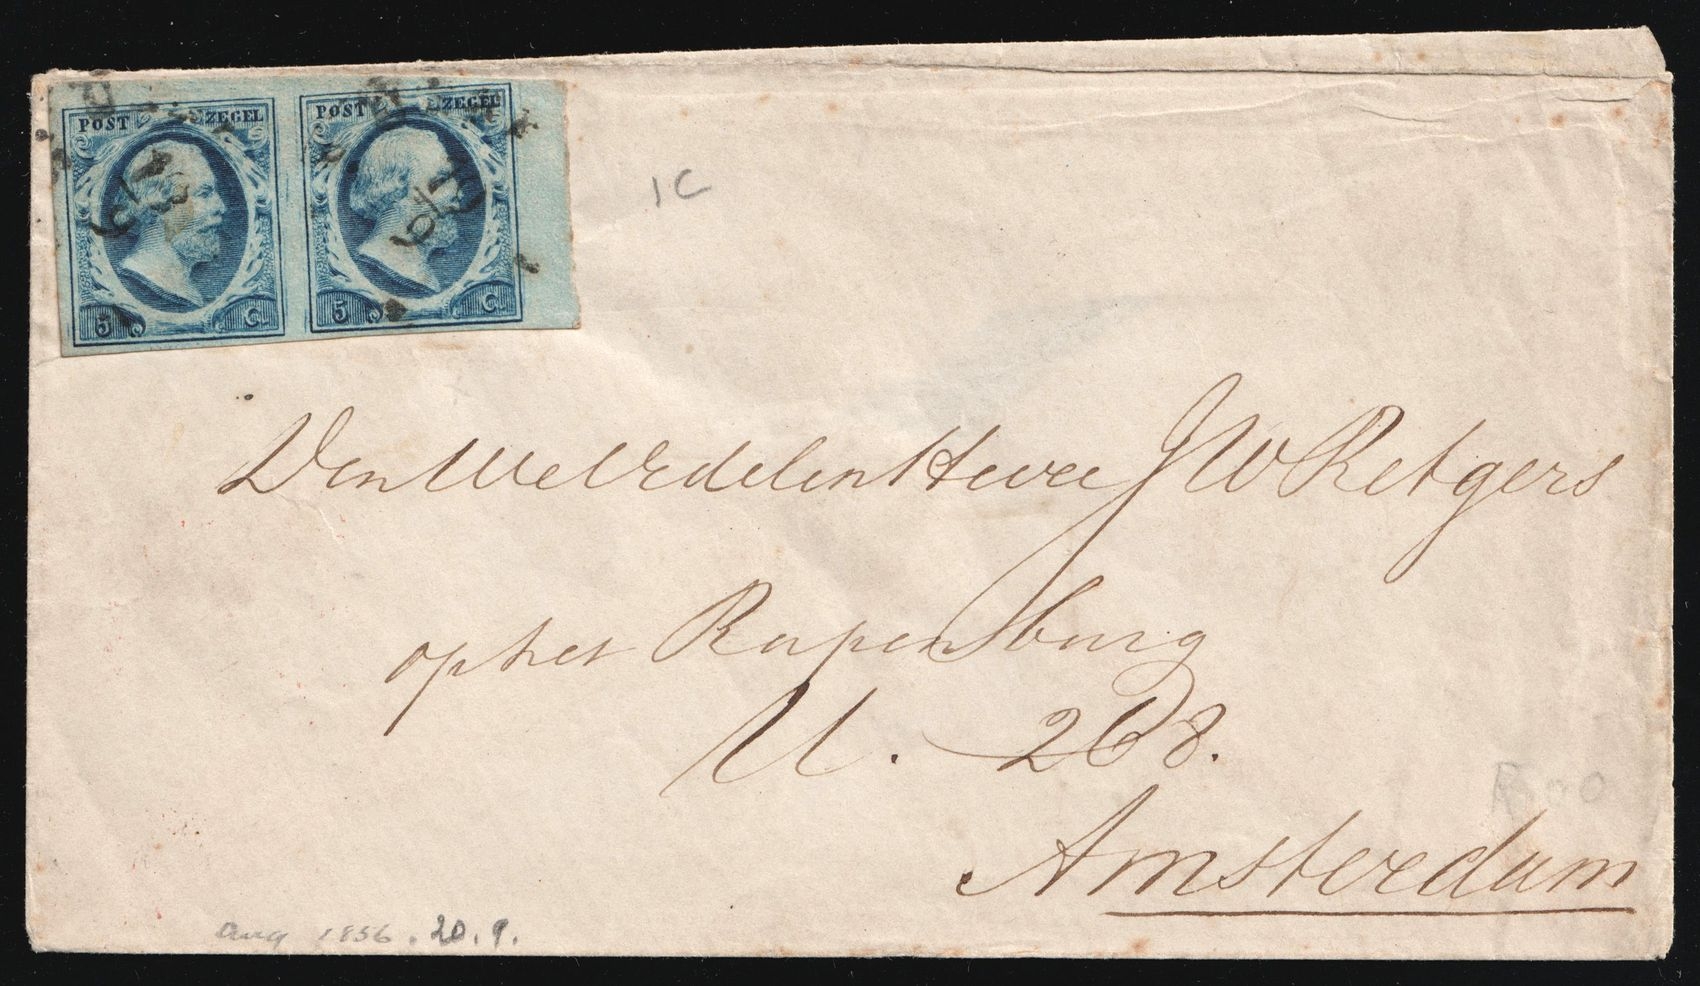 POST ZEGEL POST ZEGEL
5 C 5 C
1C
Den WelEdelen Heere J W Retgers
op het Rapenburg
U. 268.
Amsterdam
aug 1856. 20. 9.